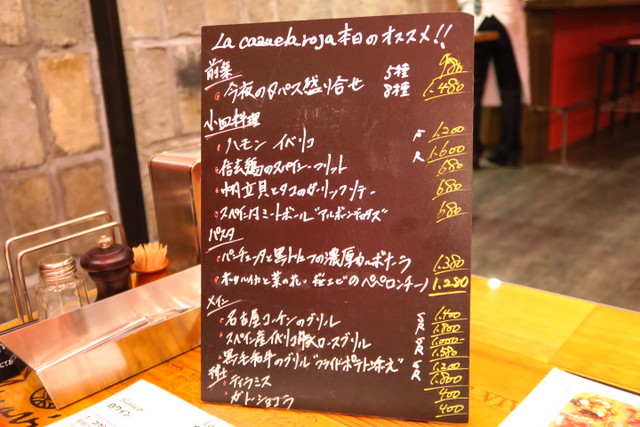 La cazuela roja 本日のオススメ!!
前菜
今夜のタパス盛り合せ 5種 980
8種 1.480
小皿料理
ハモン イベリコ S 1.200
R 1.600
信玄鶏のスペイン フリット 680
帆立貝とタコのガーリックソテー 680
スペイン風ミートボール"アルボンディガス" 680
パスタ
パンチェッタと黒トリュフの濃厚カルボナーラ 1.380
ホタルイカと菜の花、桜エビのペペロンチーノ 1.280
メイン
名古屋コーチンのグリル S 1.400
R 1.800
スペイン産イベリコ豚ロースグリル S 1.000
R 1.580
黒毛和牛のグリル"フライドポテト添え" S 1.200
R 1.800
ティラミス 400
ガトショコラ 400
白ワイン